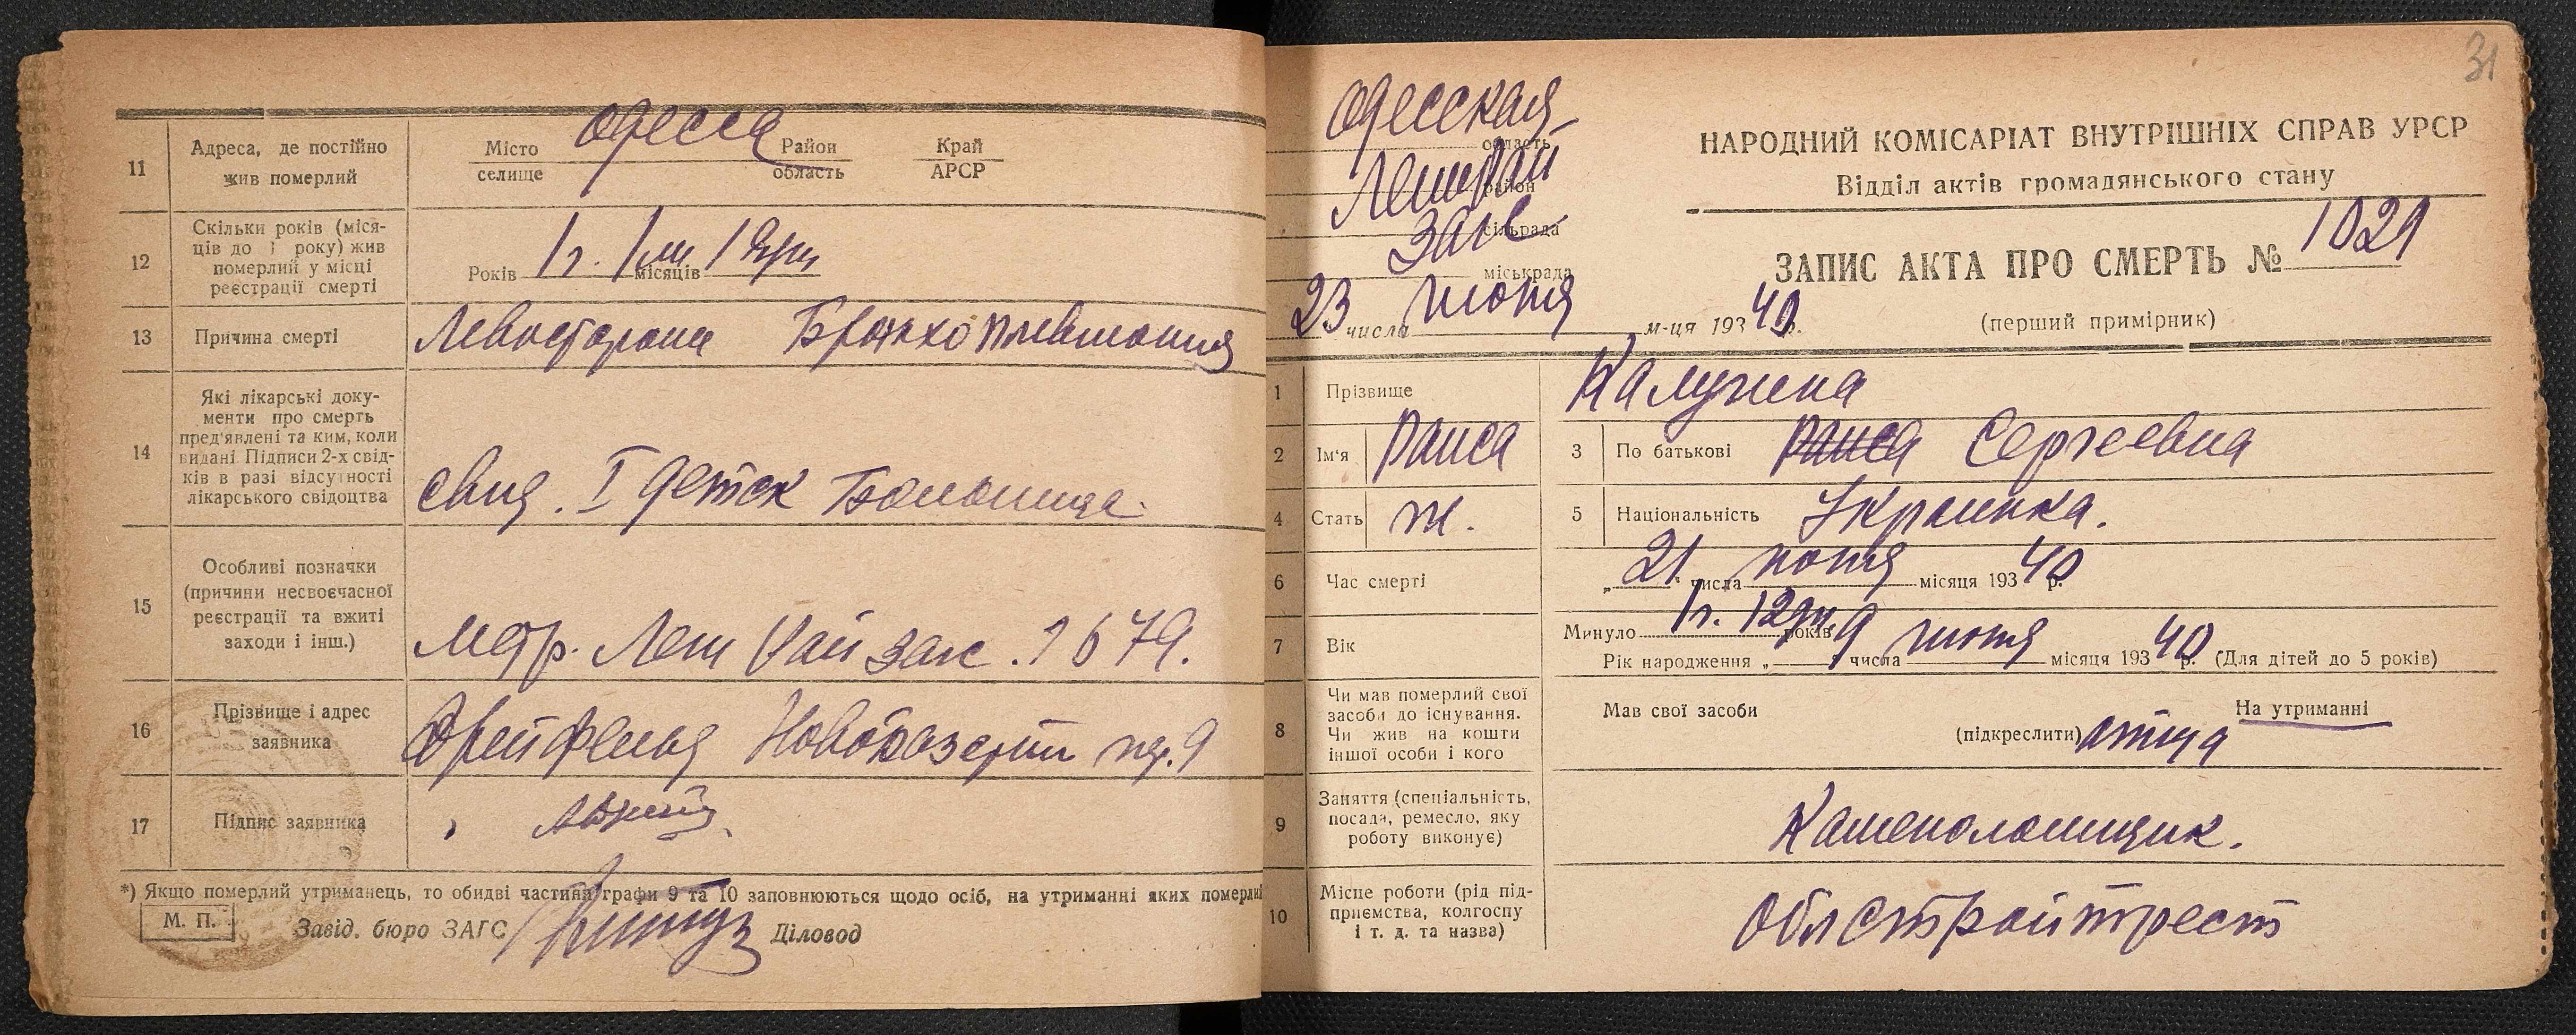 11
Адреса, де постійно
жив померлий
Місто
селище
Одесса
Район
область
Край
АРСР
12
Скільки років (міся-
ців до 1 року) жив
померлий у місці
реєстрації смерті
Років 1 г. 1 м місяців 12 дн
13
Причина смерті
Левосторонн Бронхопневмония
14
Які лікарські доку-
менти про смерть
пред'явлені та ким, коли
видані. Підписи 2-х свід-
ків в разі відсутності
лікарського свідоцтва
свид. I детск Больница.
15
Особливі позначки
(причини несвоєчасної
реєстрації та вжиті
заходи і інш.)
Метр. Лен Рай загс. 1679.
16
Прізвище і адрес
заявника
Новобазарн
17
Підпис заявника
*) Якщо померлий утриманець, то обидві частини графи 9 та 10 заповнюються щодо осіб, на утриманні яких померлий
М. П.
Завід. бюро ЗАГС
Діловод
31
Одесская
область
ЛенРай
район
Загс
сільрада
міськрада
23 числа июня м-ця 193 40 р.
НАРОДНИЙ КОМІСАРІАТ ВНУТРІШНІХ СПРАВ УРСР
Відділ актів громадянського стану
ЗАПИС АКТА ПРО СМЕРТЬ № 1029
(перший примірник)
1
Прізвище
Калугина
2
Ім'я
Раиса
3
По батькові
Раиса Сергеевна
4
Стать
ж.
5
Національність
Украинка.
6
Час смерті
„ 21 " числа июня місяця 193 40 р.
7
Вік
Минуло 1 г. 12 дн. років
Рік народження „ 9 числа июня місяця 193 40 р. (Для дітей до 5 років)
8
Чи мав померлий свої
засоби до існування.
Чи жив на кошти
іншої особи і кого
Мав свої засоби
На утриманні
(підкреслити) отца
9
Заняття (спеціальність,
посада, ремесло, яку
роботу виконує)
Каменоломщик.
10
Місце роботи (рід під-
приємства, колгоспу
і т. д. та назва)
Облстройтрест